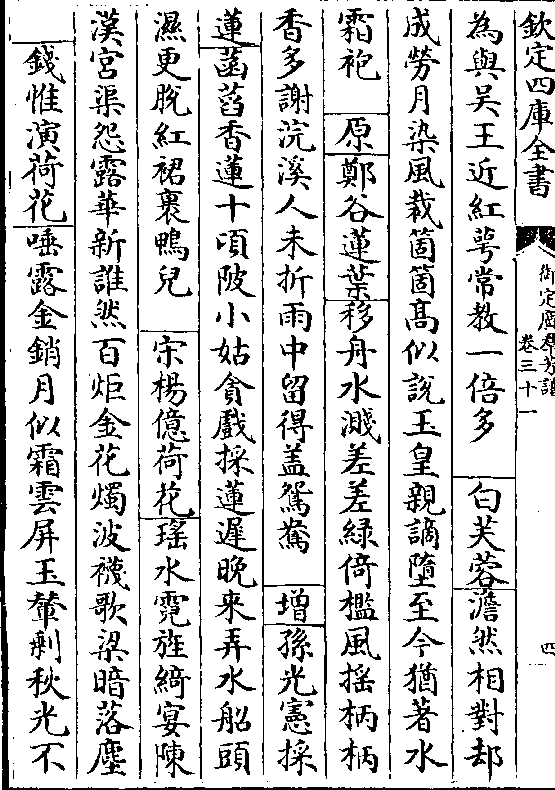 欽定四庫全書
御定廣羣芳譜
卷三十一
四
為與吴王近紅萼常教一倍多　白芙蓉澹然相對却
成勞月染風裁箇箇髙似說玉皇親謫墮至今猶著水
霜袍　原鄭谷蓮葉移舟水濺差差緑倚檻風揺柄柄
香多謝浣溪人未折雨中留得盖鴛鴦　増孫光憲採
蓮菡萏香蓮十頃陂小姑貪戲採蓮遲晚來弄水船頭
濕更脫紅裙裹鴨兒　宋楊億荷花瑤水霓旌綺宴陳
漢宮渠怨露華新誰然百炬金花燭波襪歌梁暗落塵
錢惟演荷花唾露金銷月似霜雲屏玉輦剩秋光不